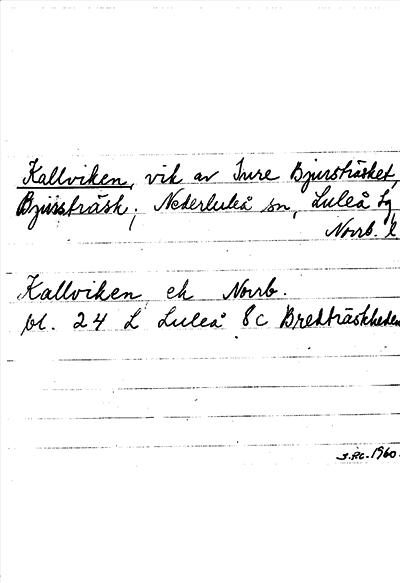 Kallviken, vik av Inre Bjursträsket,
Bjursträsk; Nederluleå sn, Luleå tg
Norrb. l
Kallviken ek Norrb.
bl. 24 L Luleå 8c Bredträskheden
1960.